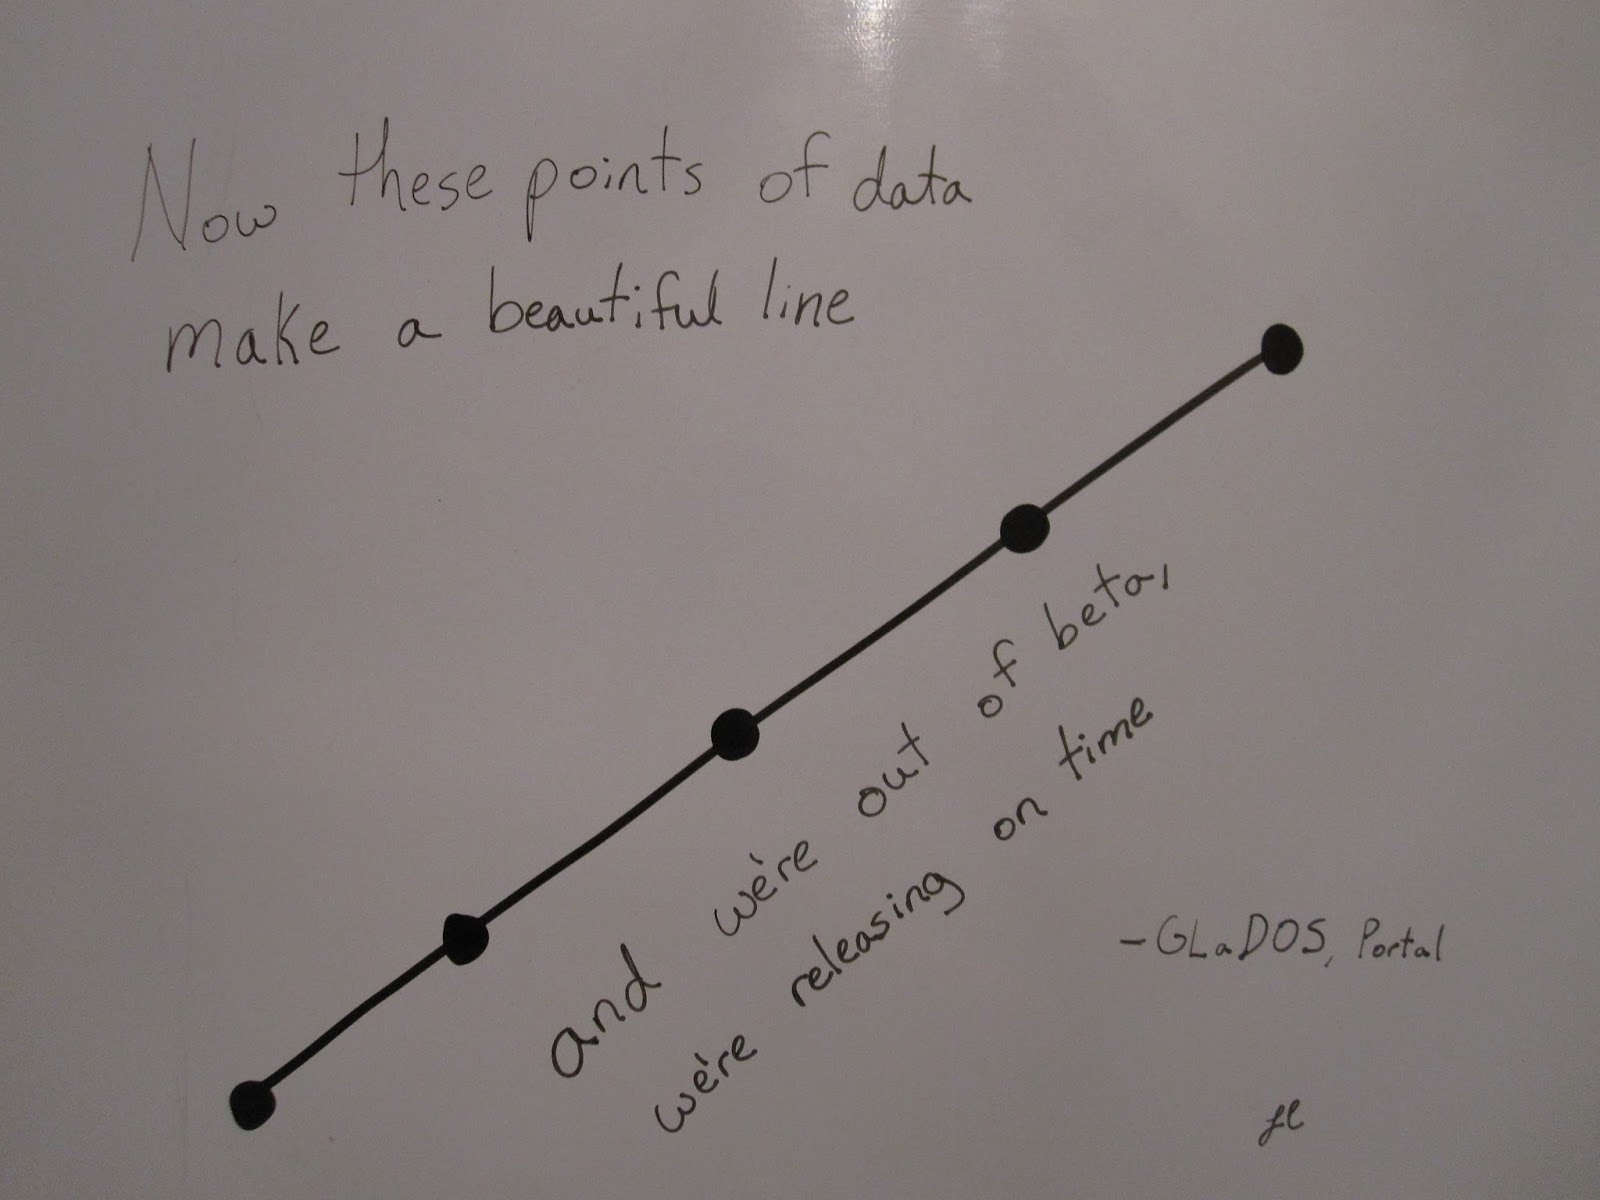 Now these points of data
make a beautiful line
and we're out of beta,
we're releasing on time
- GLaDOS, Portal